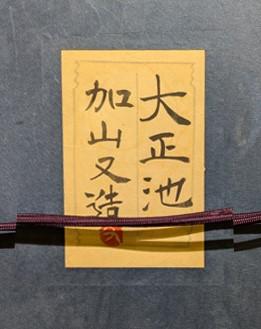 大正池
加山又造